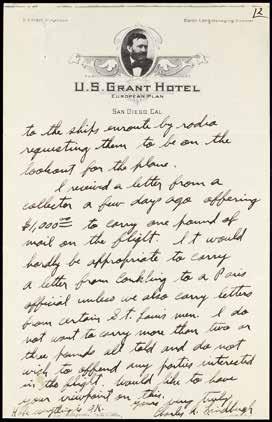 12
Baron Long, Managing Director
U.S. GRANT HOTEL
EUROPEAN PLAN
SAN DIEGO, CAL.
to the ships enroute by radio
requesting them to be on the
lookout for the plane.
I received a letter from a
collector a few days ago offering
$1,000.00 to carry one pound of
mail on the flight. It would
hardly be appropriate to carry
a letter from Conkling to a Paris
official unless we also carry letters
from certain St. Louis men. I do
not want to carry more than two or
three pounds all told and do not
wish to offend any parties interested
in the flight. Would like to have
your viewpoint on this.
Yours very truly
Charles A. Lindbergh